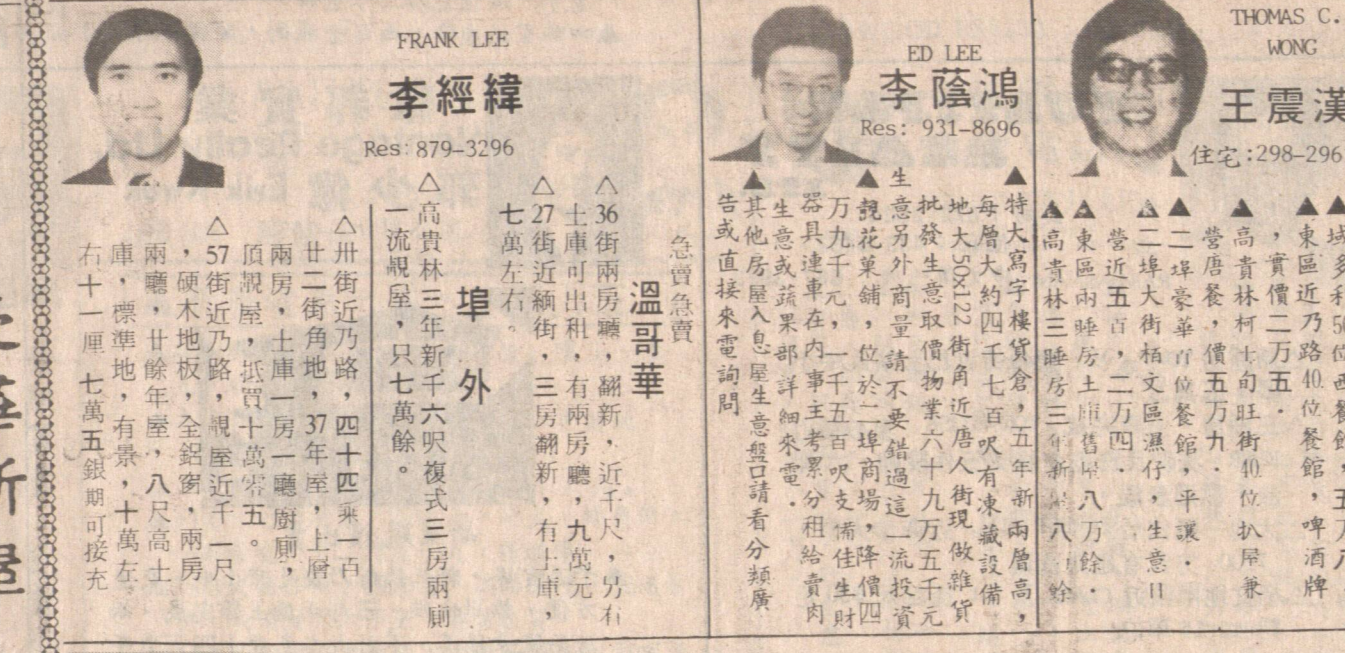 FRANK LEE
李經緯
Res: 879-3296
急賣急賣
溫哥華
△36街兩房廳，翻新，近千尺，另有
土庫可出租，有兩房廳，九萬元
△27街近緬街，三房翻新，有土庫，
七萬左右。
埠外
△高貴林三年新千六呎複式三房兩廁
一流靚屋，只七萬餘。
△卅街近乃路，四十四乘一百
廿二街角地，37年屋，上層
兩房，土庫一房一廳廚廁，
頂靚屋，抵買十萬零五。
△57街近乃路，靚屋近千一尺
，硬木地板，全鋁窗，兩房
兩廳，廿餘年屋，八尺高土
庫，標準地，有景，十萬左
右十一厘 七萬五銀期可接充
ED LEE
李蔭鴻
Res: 931-8696
▲特大寫字樓貨倉，五年新兩層高，
每層大約四千七百呎有凍藏設備
地大50x122街角近唐人街現做雜貨
批發生意取價物業六十九万五千元
生意另外商量請不要錯過這一流投資
▲靚花菓舖，位於二埠商場，降價四
万九千元，一千五百呎支備佳生財
器具連車在內事主考累分租給賣肉
生意或蔬果部詳細來電．
▲其他房屋入息屋生意盤口請看分類廣
告或直接來電詢問
THOMAS C.
WONG
王震漢
住宅:298-296
東區近乃路40位餐館，啤酒牌
，實價二万五．
▲高貴林柯士甸旺街40位扒屋兼
營唐餐，價五万九．
▲二埠豪華百位餐館，平讓．
▲二埠大街栢文區濕仔，生意日
營近五百，二万四．
▲東區兩睡房土庫舊屋八万餘．
▲高貴林三睡房三 新 八 餘